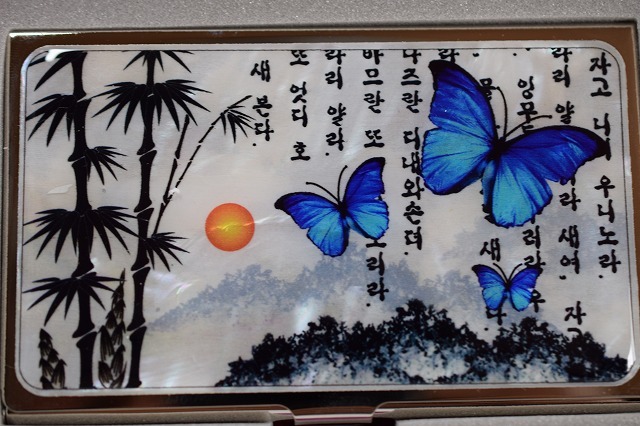 자고 니러 우니노라.
라리 얄 라 새여. 자고
잉무든 러라 우
믈 새 다.
라
나즈란 디내와손뎌
바므란 또 리라.
라리 얄라.
또 잇디 호
새 본다.